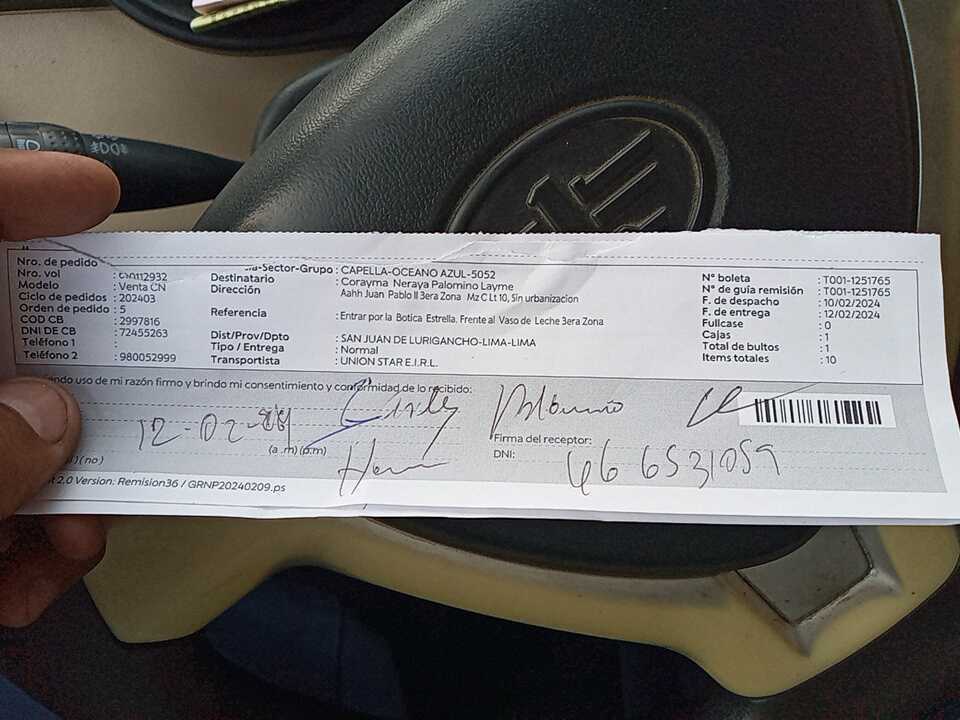 Nro. de pedido
Nro. vol : 
Modelo : Venta CN
Ciclo de pedidos : 202403
Orden de pedido : 5
COD CB : 2997816
DNI DE CB : 72455263
Teléfono 1 :
Teléfono 2 : 980052999
-Sector-Grupo : CAPELLA-OCEANO AZUL-5052
Destinatario : Corayma Neraya Palomino Layme
Dirección : Aahh Juan Pablo II 3era Zona Mz C Lt 10, Sin urbanizacion
Referencia : Entrar por la Botica Estrella. Frente al Vaso de Leche 3era Zona
Dist/Prov/Dpto : SAN JUAN DE LURIGANCHO-LIMA-LIMA
Tipo / Entrega : Normal
Transportista : UNION STAR E.I.R.L.
N° boleta : T001-1251765
N° de guía remisión : T001-1251765
F. de despacho : 10/02/2024
F. de entrega : 12/02/2024
Fullcase : 0
Cajas : 1
Total de bultos : 1
Items totales : 10
uso de mi razón firmo y brindo mi consentimiento y conformidad de lo recibido:
12-02-
(a .m) (p.m)
Palomino
Firma del receptor:
DNI: 46 6531059
) ( no )
2.0 Version: Remision36 / GRNP20240209.ps